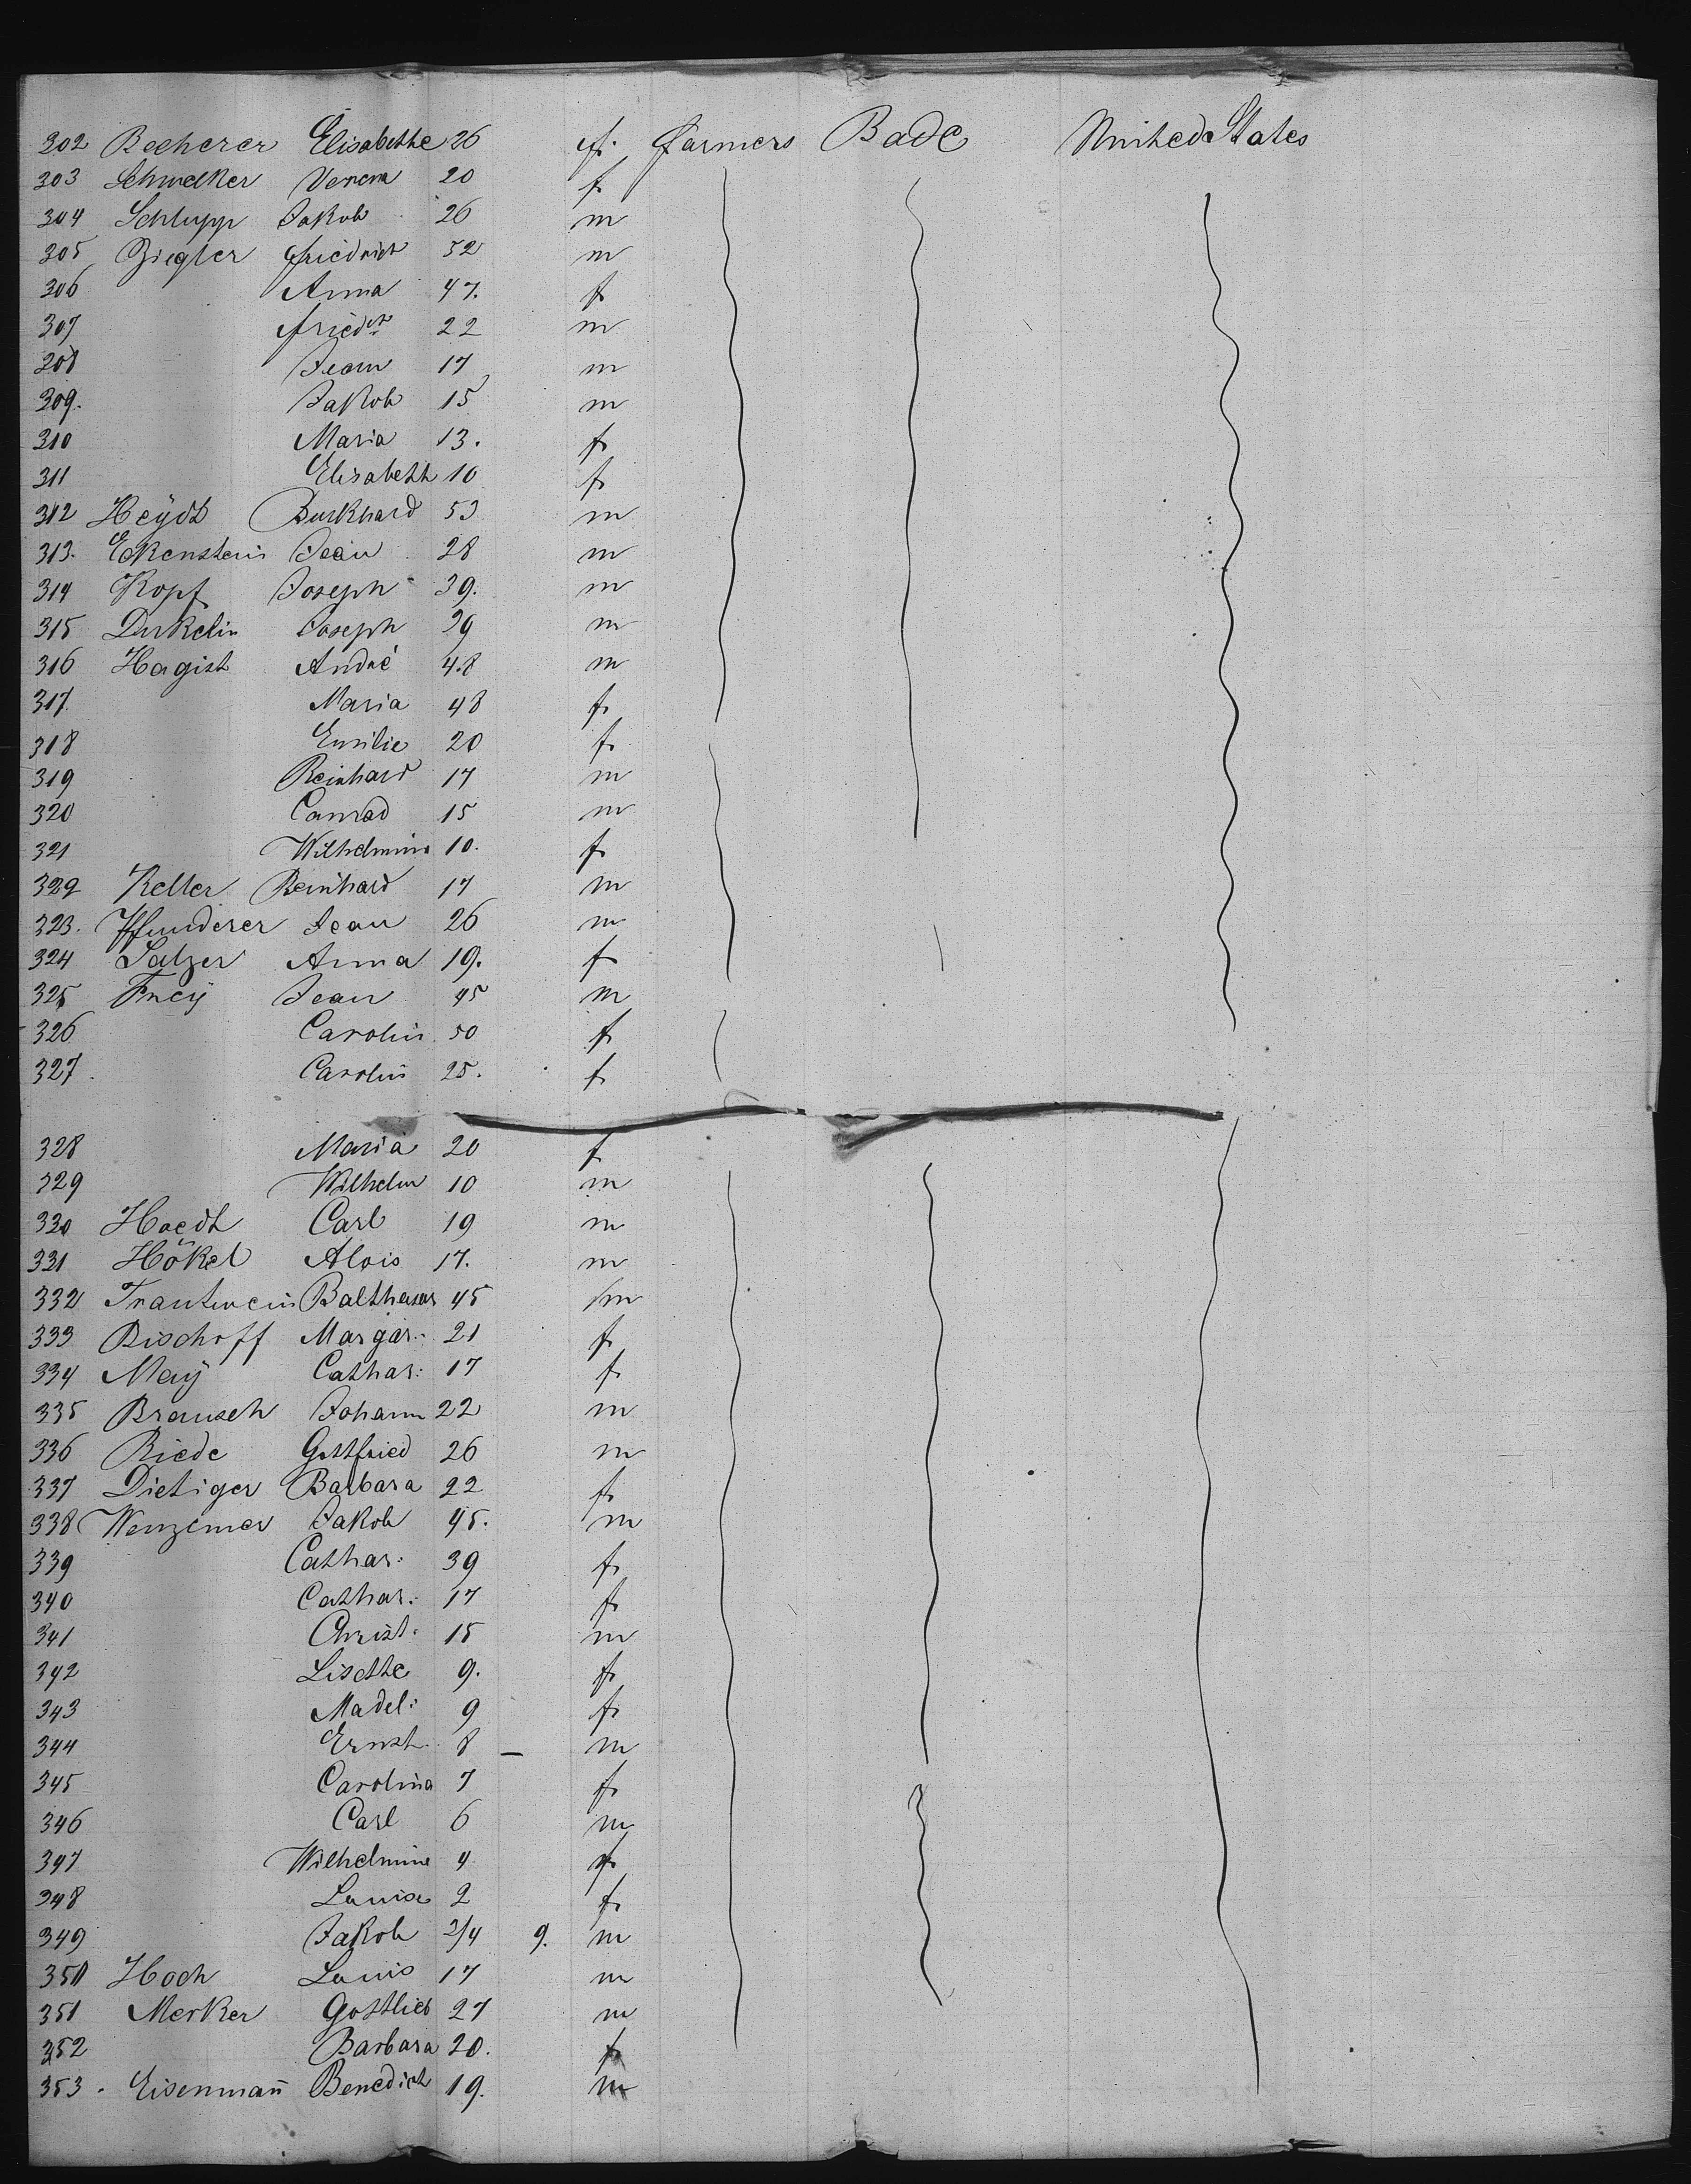 302 Becherer Elisabethe 26 f. farmers Bade United States
303 Schmelker Verena 20 f
304 Schlupp Jakob 26 m
305 Ziegler Friedrich 52 m
306 Anna 47. f
307 Friedch 22 m
308 Jean 17 m
309. Jakob 15 m
310 Maria 13. f
311 Elisabeth 10 f
312 Heÿdt Burkhard 53 m
313. Eckenstein Jean 28 m
314 Kopf Joseph 39. m
315 Joseph 29 m
316 Hagist André 48 m
317. Maria 48 f
318 Emilie 20 f
319 Reinhard 17 m
320 Conrad 15 m
321 Wilhelmina 10. f
322 Keller Bernhard 17 m
323. Pfunderer Jean 26 m
324 Salzer Anna 19. f
325 Freÿ Jean 45 m
326 Carolin 50 f
327. Carolin 25. f
328 Maria 20 f
329 Wilhelm 10 m
330 Carl 19 m
331 Hökel Alois 17. m
332 Trautwein Balthasar 45 m
333 Bischoff Margar: 21 f
334 Maÿ Cathar: 17 f
335 Brausch Johann 22 m
336 Riede Gottfried 26 m
337 Dietiger Barbara 22 f
338 Wenzemer Jakob 45. m
339 Cathar: 39 f
340 Cathar: 17 f
341 Christ: 15 m
342 Lisette 9. f
343 Madel: 9 f
344 Ernst. 8 — m
345 Carolina 7 f
346 Carl 6 m
347 Wilhelmine 4 f
348 Louise 2 f
349 Jakob 3/4 9. m
350 Hoch Louis 17 m
351 Merker Gottlieb 27 m
352 Barbara 20. f
353. Eisenman̄ Benedict 19. m